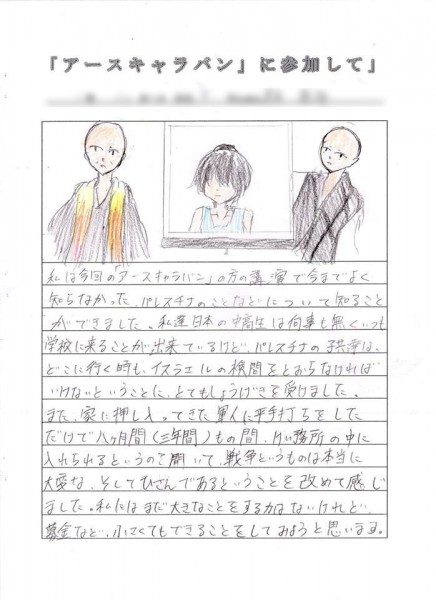 「アースキャラバン」に参加して」
私は今回の「アースキャラバン」の方の講演で今までよく
知らなかった、パレスチナのことなどについて知ること
ができました。私達日本の中高生は何事も無くいつも
学校に来ることが出来ているけど、パレスチナの子供達は、
どこに行く時も、イスラエルの検問をとおらなければ
いけないということに、とてもしょうげきを受けました。
また、家に押し入ってきた軍人に平手打ちをした
だけで八ヶ月間(三年間)もの間、けい務所の中に
入れられるというのを聞いて、戦争というものは本当に
大変な、そしてひさんであるということを改めて感じ
ました。私にはまだ大きなことをする力はないけれど、
募金など、小さくてもできることをしてみようと思います。